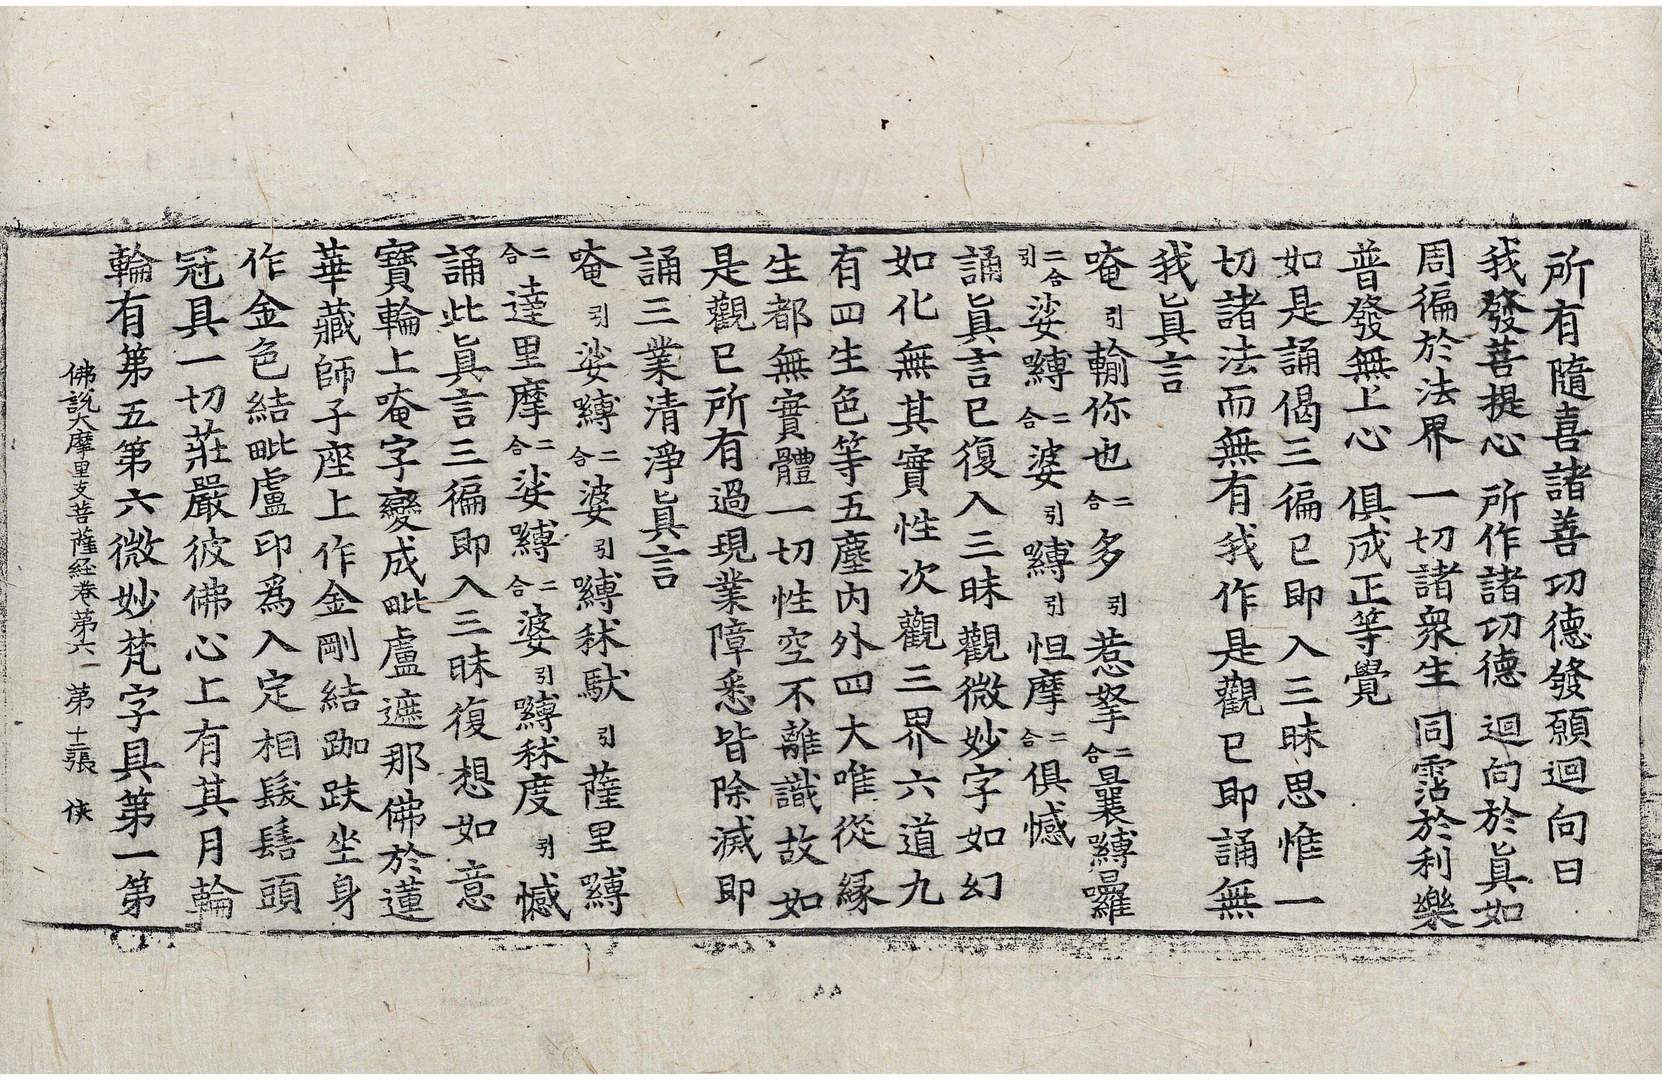 所有隨喜諸善功德發願迴向曰
我發菩提心 所作諸功德 迴向於眞如
周徧於法界 一切諸衆生 同霑於利樂
普發無上心 俱成正等覺
如是誦偈三徧已即入三昧思惟一
切諸法而無有我作是觀已即誦無
我眞言
唵引輸你也二合多引惹拏二合曩嚩囉
二合引娑嚩二合婆引嚩引怛摩二合俱憾
誦眞言已復入三昧觀微妙字如幻
如化無其實性次觀三界六道九
有四生色等五塵內外四大唯從緣
生都無實體一切性空不離識故如
是觀已所有過現業障悉皆除滅即
誦三業清淨眞言
唵引娑嚩二合婆引嚩秫馱引薩里嚩
二合達里摩二合娑嚩二合婆引嚩秫度引憾
誦此眞言三徧即入三昧復想如意
寶輪上唵字變成毗盧遮那佛於蓮
華藏師子座上作金剛結跏趺坐身
作金色結毗盧印爲入定相髮髻頭
冠具一切莊嚴彼佛心上有其月輪
輪有第五第六微妙梵字具第一第
佛說大摩里支菩薩經卷第六 第十二張 俠